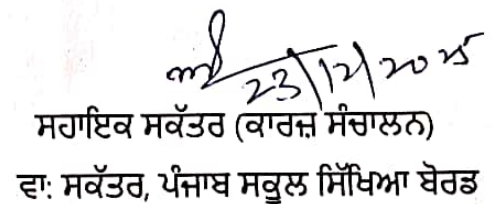 23/12/2025
ਸਹਾਇਕ ਸਕੱਤਰ (ਕਾਰਜ਼ ਸੰਚਾਲਨ)
ਵਾ: ਸਕੱਤਰ, ਪੰਜਾਬ ਸਕੂਲ ਸਿੱਖਿਆ ਬੋਰਡ